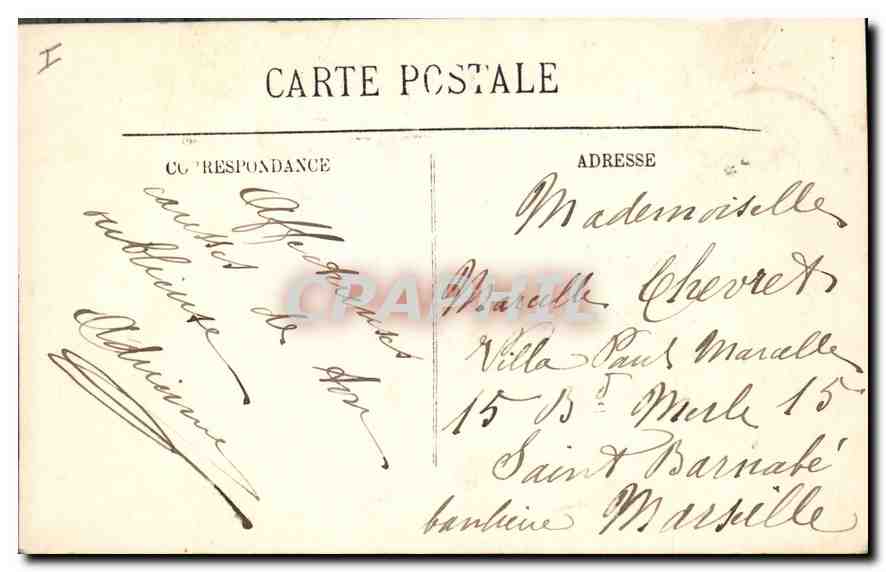 I
CARTE POSTALE
CORRESPONDANCE
Affectueuses
causses de ton
oublieuse
Adrienne
ADRESSE
Mademoiselle
Marcelle Chevret
Villa Paul Marcelle
15 Bd Merle 15
Saint Barnabé
banlieue Marseille
CPAPHIL